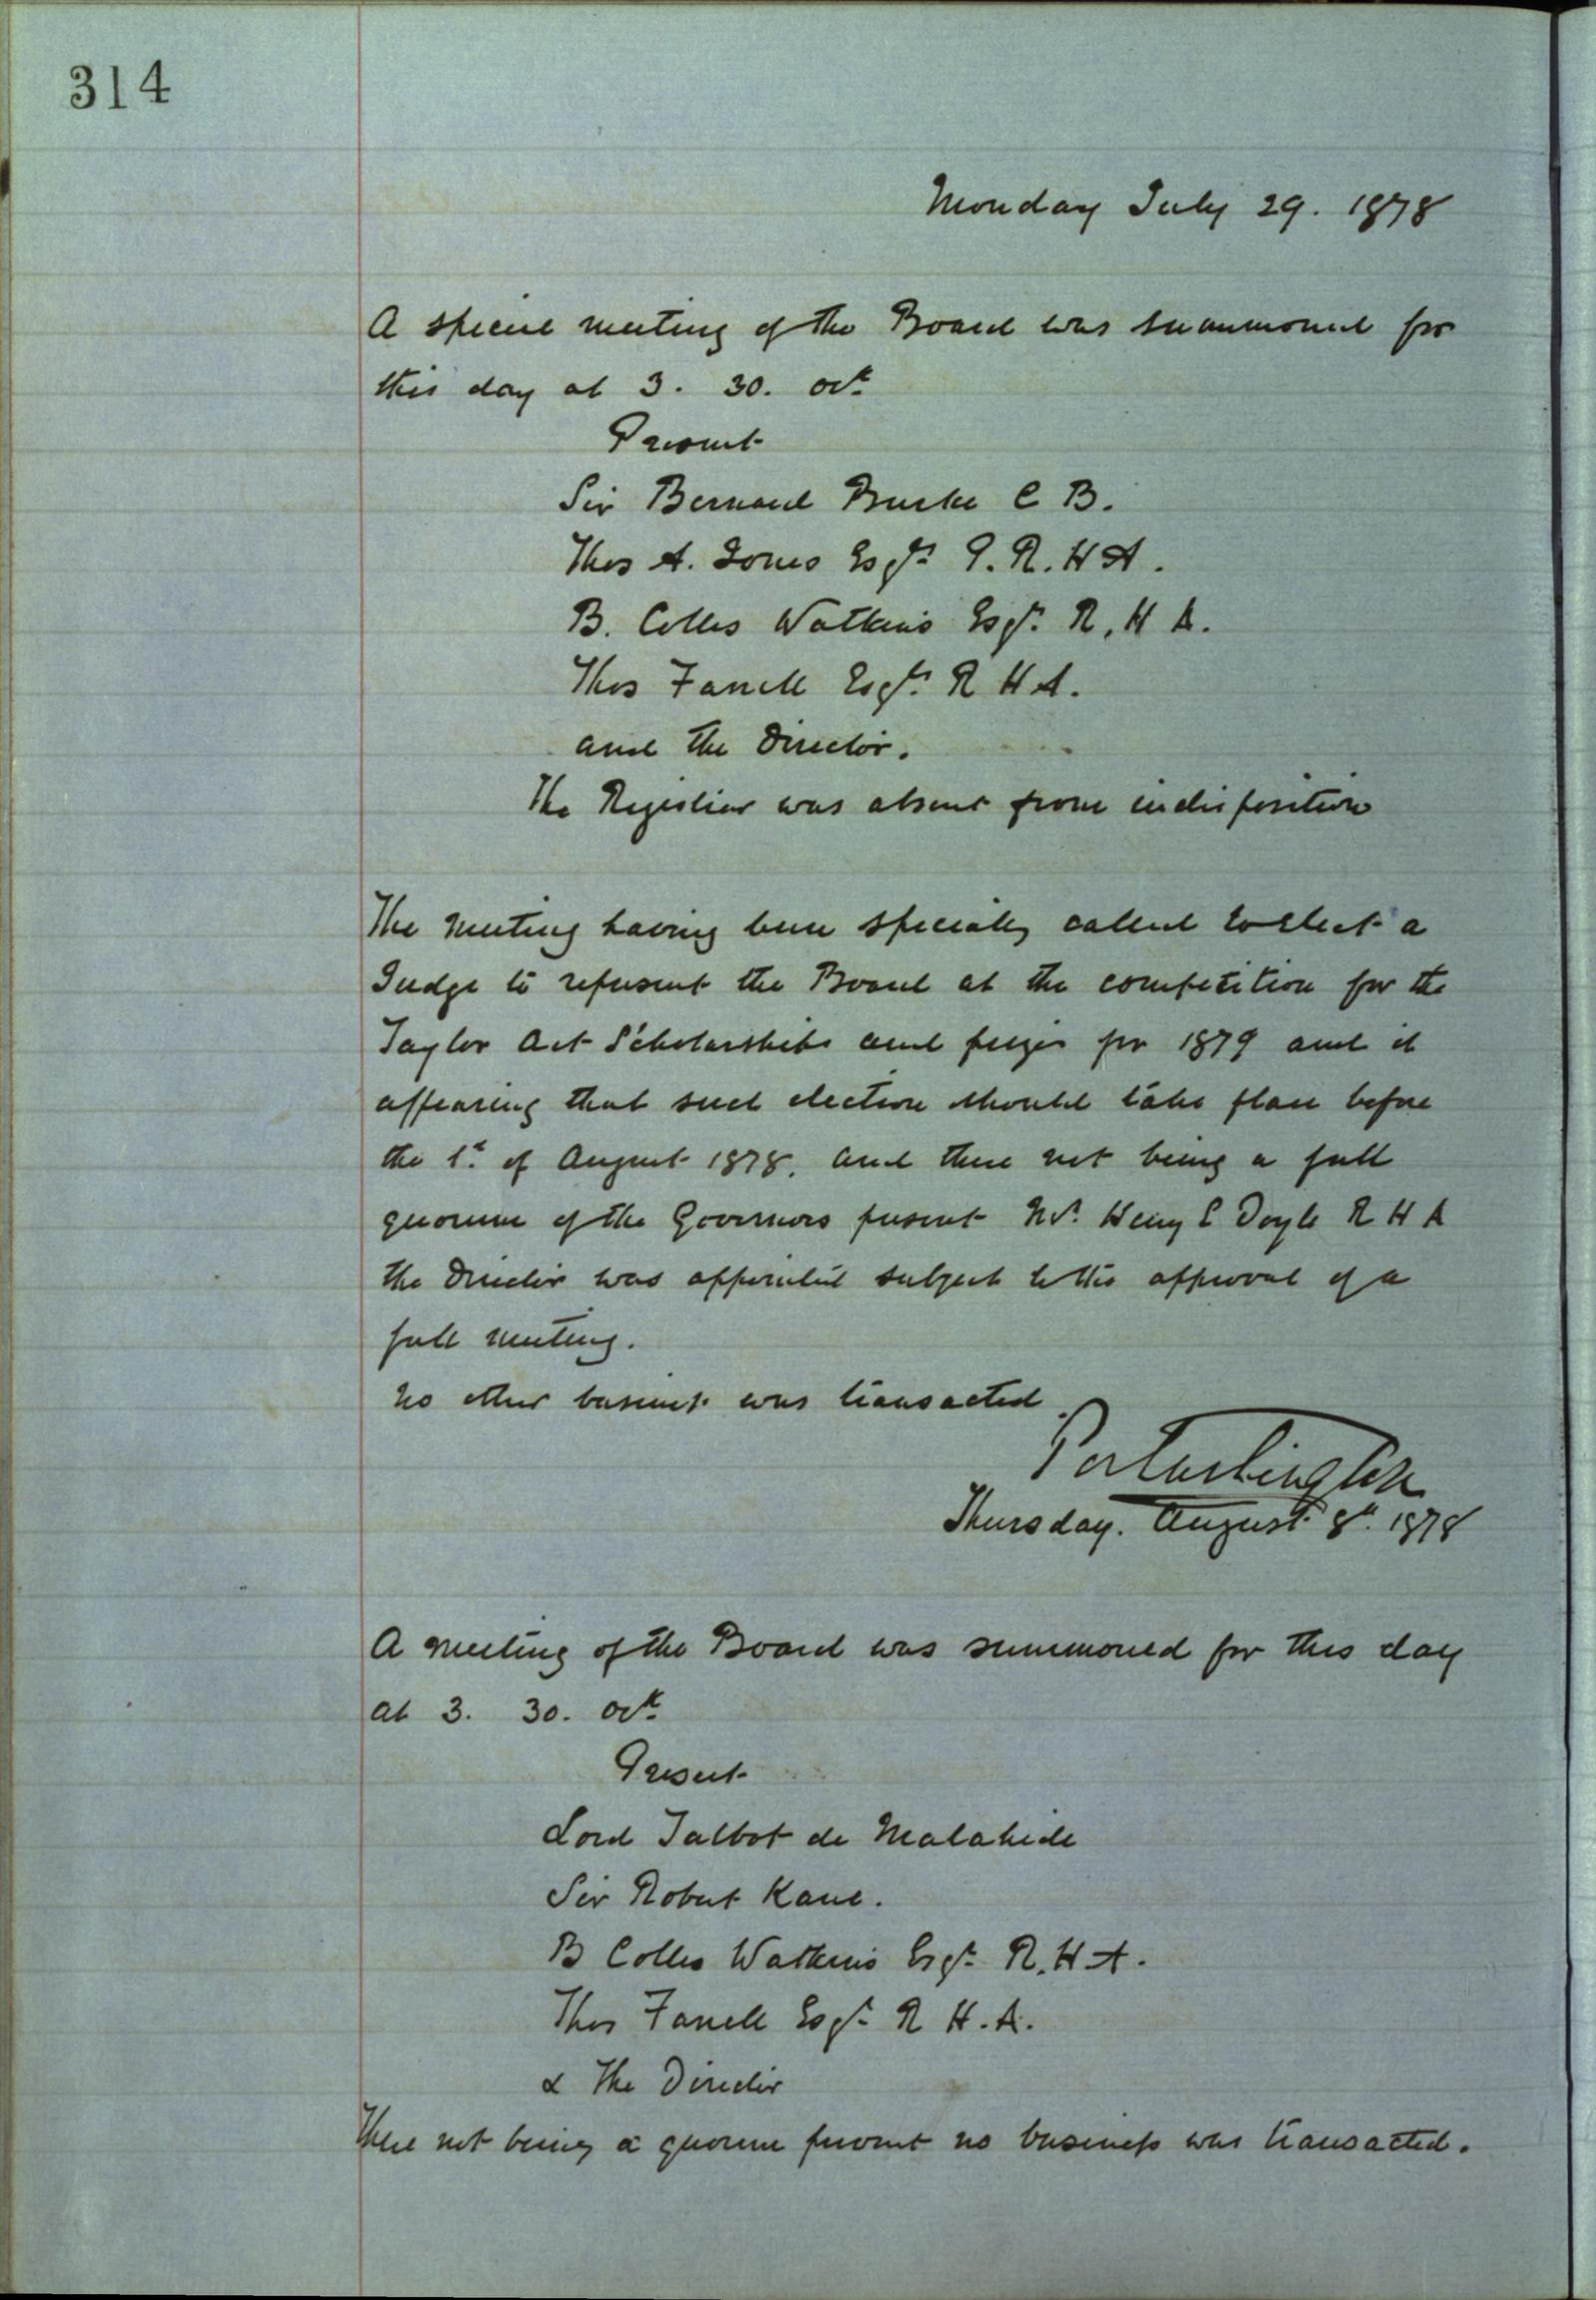 314
Monday July 29. 1878
A special meeting of the Board was summoned for
this day at 3. 30. Ock
Present
Sir Bernard Burke C B.
Thos A. Jones Esqr. P. R. H A.
B. Colles Watkins Esqr. R. H A.
Thos Farrell Esqr. R H A.
and the Director.
The Registrar was absent from indisposition
The meeting having been specially called to elect a
Judge to represent the Board at the competition for the
Taylor Art Scholarships and prizes for 1879 and it
appearing that such election should take place before
the 1st of August 1878. and there not being a full
quorum of the Governors present Mr. Henry E Doyle R H A
the Director was appointed subject to the approval of a
full meeting.
No other business was transacted.
Portarlington
Thursday. August 8th. 1878
A meeting of the Board was summoned for this day
at 3. 30. Ock
Present
Lord Talbot de Malahide
Sir Robert Kane.
B Colles Watkins Esqr. R. H A.
Thos Farrell Esqr. R H. A.
& The Director
There not being a quorum present no business was transacted.